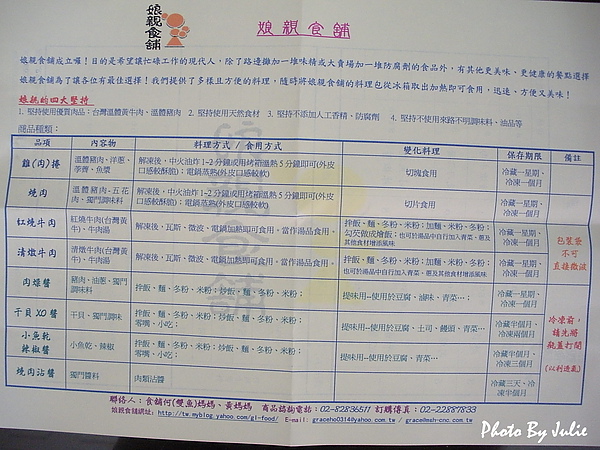 娘親食舖
娘親食舖
娘親食舖成立囉！目的是希望讓忙碌工作的現代人，除了路邊攤加一堆味精或大賣場加一堆防腐劑的食品外，有其他更美味、更健康的餐點選擇
娘親食舖為了讓各位有最佳選擇！我們提供了多樣且方便的料理，隨時將娘親食舖的料理包從冰箱取出加熱即可食用，迅速、方便又美味！
娘親的四大堅持
1. 堅持使用優質肉品：台灣溫體黃牛肉、溫體豬肉 2. 堅持使用天然食材 3. 堅持不添加人工香精、防腐劑 4. 堅持不使用來路不明調味料、油品等
商品種類：
品項 內容物 料理方式 / 食用方式 變化料理 保存期限 備註
雞(肉)捲 溫體豬肉、洋蔥、荸薺、魚漿 解凍後，中火油炸 1~2 分鐘或用烤箱溫熱 5 分鐘即可(外皮口感較酥脆)；電鍋蒸熱(外皮口感較軟) 切塊食用 冷藏一星期、冷凍一個月
燒肉 溫體豬肉-五花肉、獨門調味料 解凍後，中火油炸 1~2 分鐘或用烤箱溫熱 5 分鐘即可(外皮口感較酥脆)；電鍋蒸熱(外皮口感較軟) 切片食用 冷藏一星期、冷凍一個月
紅燒牛肉 紅燒牛肉(台灣黃牛)、牛肉湯 解凍後，瓦斯、微波、電鍋加熱即可食用，當作湯品食用。 拌飯、麵、冬粉、米粉；加麵、米粉、冬粉；勾芡做成燴飯；也可於湯品中自行加入青菜、蔥及其他食材增添風味 冷藏一星期、冷凍一個月 包裝袋不可直接微波
清燉牛肉 清燉牛肉(台灣黃牛)、牛肉湯 解凍後，瓦斯、微波、電鍋加熱即可食用，當作湯品食用。 拌飯、麵、冬粉、米粉；加麵、米粉、冬粉；也可於湯品中自行加入青菜、蔥及其他食材增添風味 冷藏一星期、冷凍一個月
肉燥醬 豬肉、油蔥、獨門調味料 拌飯、麵、冬粉、米粉；炒飯、麵、冬粉、米粉； 提味用--使用於豆腐、滷味、青菜…； 冷藏一星期、冷凍一個月 冷凍前，請先將瓶蓋打開(以利透氣)
干貝 XO 醬 干貝、獨門調味 拌飯、麵、冬粉、米粉；炒飯、麵、冬粉、米粉；零嘴、小吃； 提味用--使用於豆腐、土司、饅頭、青菜… 冷藏半個月、冷凍兩個月
小魚乾辣椒醬 小魚乾、辣椒 拌飯、麵、冬粉、米粉；炒飯、麵、冬粉、米粉；零嘴、小吃； 提味用--使用於豆腐、青菜… 冷藏半個月、冷凍三個月
燒肉沾醬 獨門醬料 肉類沾醬 冷藏三天、冷凍半個月
聯絡人：食舖何(雙魚)媽媽、黃媽媽 商品諮詢電話：02-82836511 訂購傳真：02-22887833
娘親食舖網址：http://tw.myblog.yahoo.com/gl-food/ E-Mail：graceho0314@yahoo.com.tw / grace@msh-cnc.com.tw
Photo By Julie